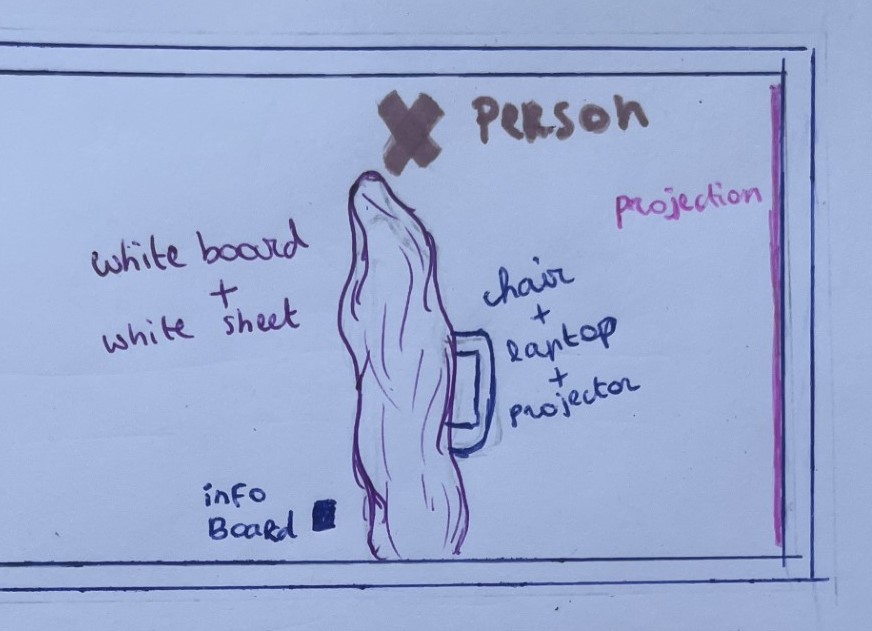 Person
projection
white board
+
white sheet
chair
+
laptop
+
projector
info
Board